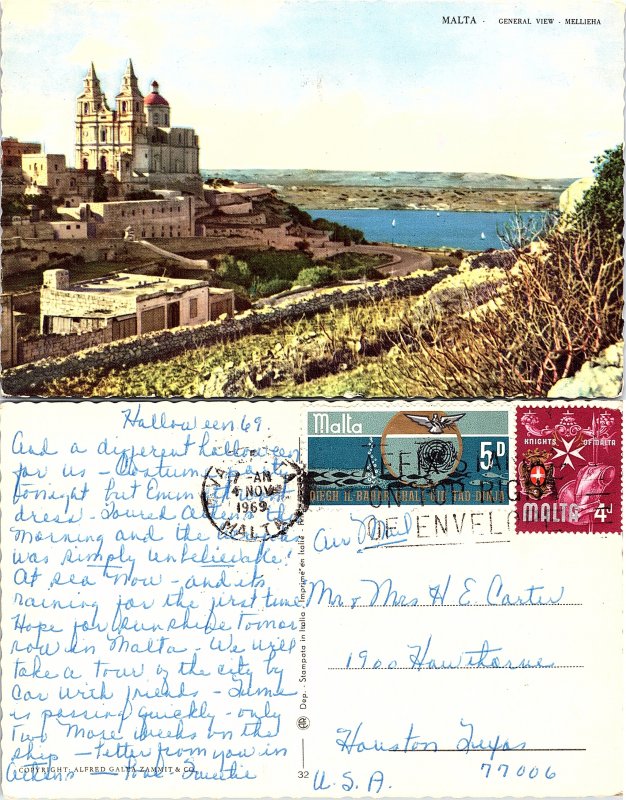 MALTA - GENERAL VIEW - MELLIEHA
Halloween 69.
And a different halloween
for us - Costume party
tonight but Emm
dress. Toured Athens this
morning and the
was simply unbelievable!
At sea now - and its
raining for the first time
Hope for sunshine tomor
row in Malta. We will
take a tour of the city by
car with friends - Time
is passing quickly - only
two more weeks on the
ship - Letter from you in
Athens -
COPYRIGHT: ALFRED GALEA ZAMMIT & CO.
VALLETTA
7-AM
4 NOV
1969
MALTA
Malta
5D
DIEGH IL BAHAR GHALL-GID TAD-DINJA
KNIGHTS OF MALTA
MALTA 4d
AFFIX STAMPS
ON TOP RIGHT
OF ENVELOPE
Air Mail
Mr & Mrs H. E. Carter
1900 Hawthorne
Houston Texas
77006
U.S.A.
Dep. - Stampata in Italia - Imprimé en Italie
32